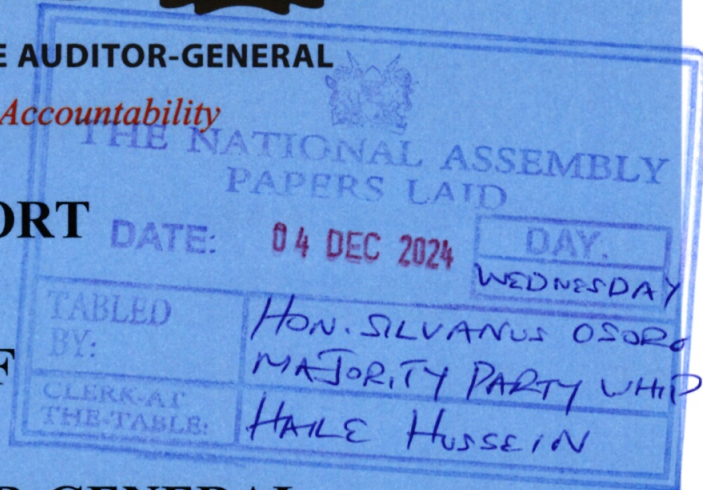 E AUDITOR-GENERAL
Accountability
THE NATIONAL ASSEMBLY
PAPERS LAID
ORT
DATE: 04 DEC 2024
DAY.
WEDNESDAY
TABLED BY:
HON. SILVANUS OSORO
MAJORITY PARTY WHIP
F
CLERK-AT THE-TABLE:
HAILE HUSSEIN
R-GENERAL